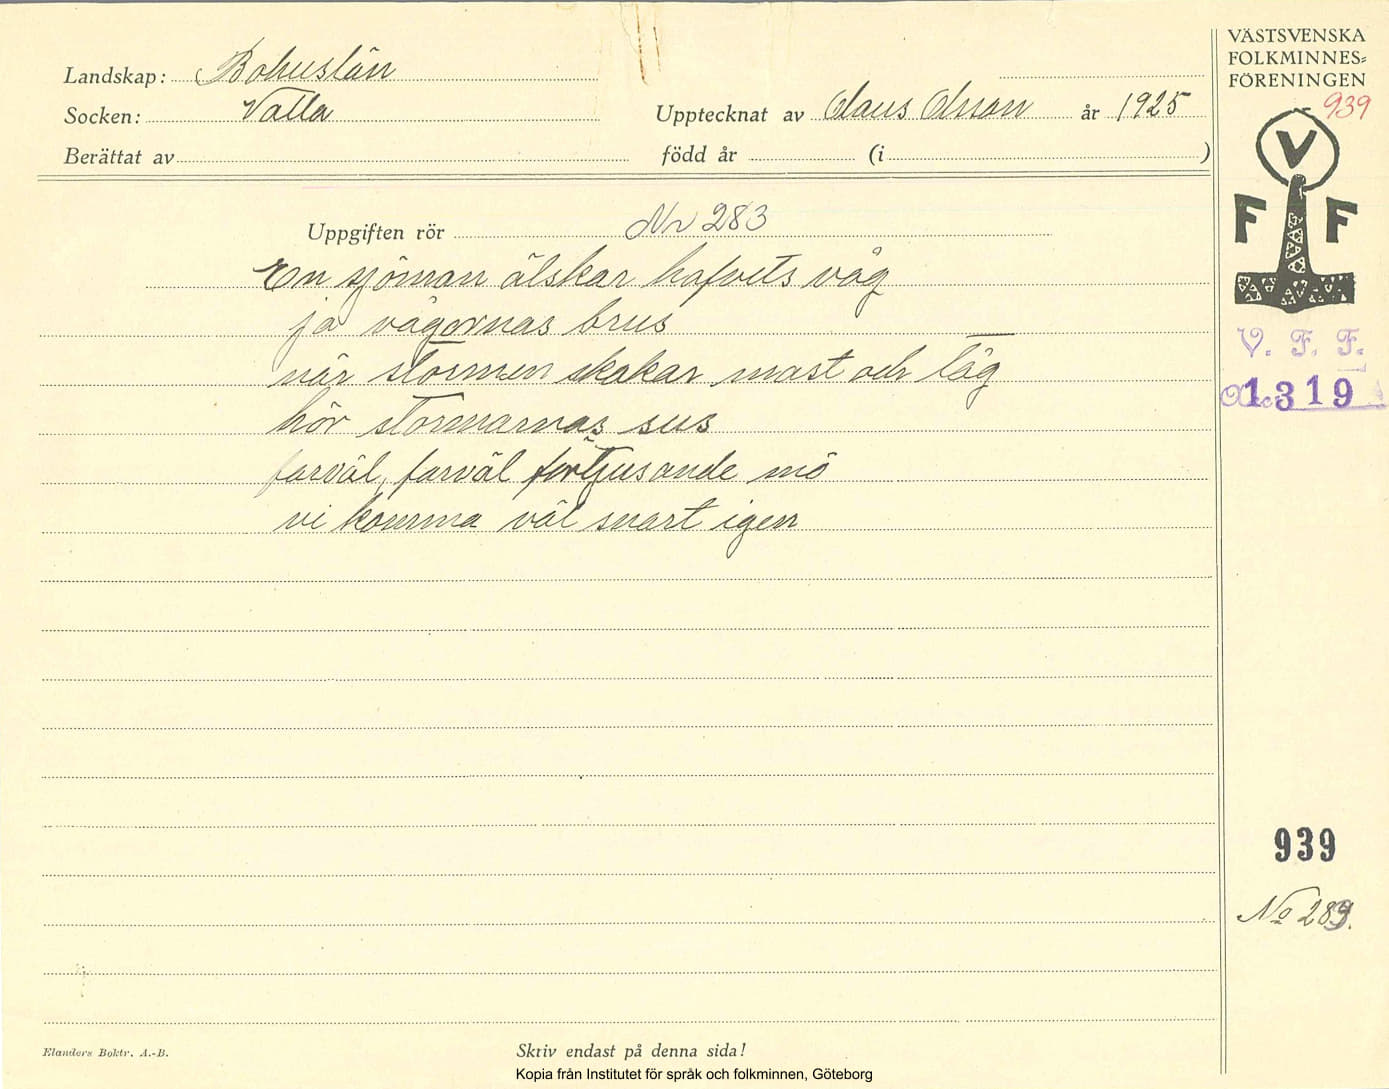 Landskap: Bohuslän
Socken: Valla
Upptecknat av Olaus Olsson år 1925
Berättat av född år (i )
VÄSTSVENSKA
FOLKMINNES=
FÖRENINGEN
939
V
F F
V. F. F.
1319
Uppgiften rör Nr 283
En sjöman älskar hafvets våg
ja vågornas brus
när stormen skakar mast och tåg
hör stormarnas sus
farväl, farväl förtjusande mö
vi komma väl snart igen
939
No 283.
Elanders Boktr. A.-B.
Skriv endast på denna sida!
Kopia från Institutet för språk och folkminnen, Göteborg